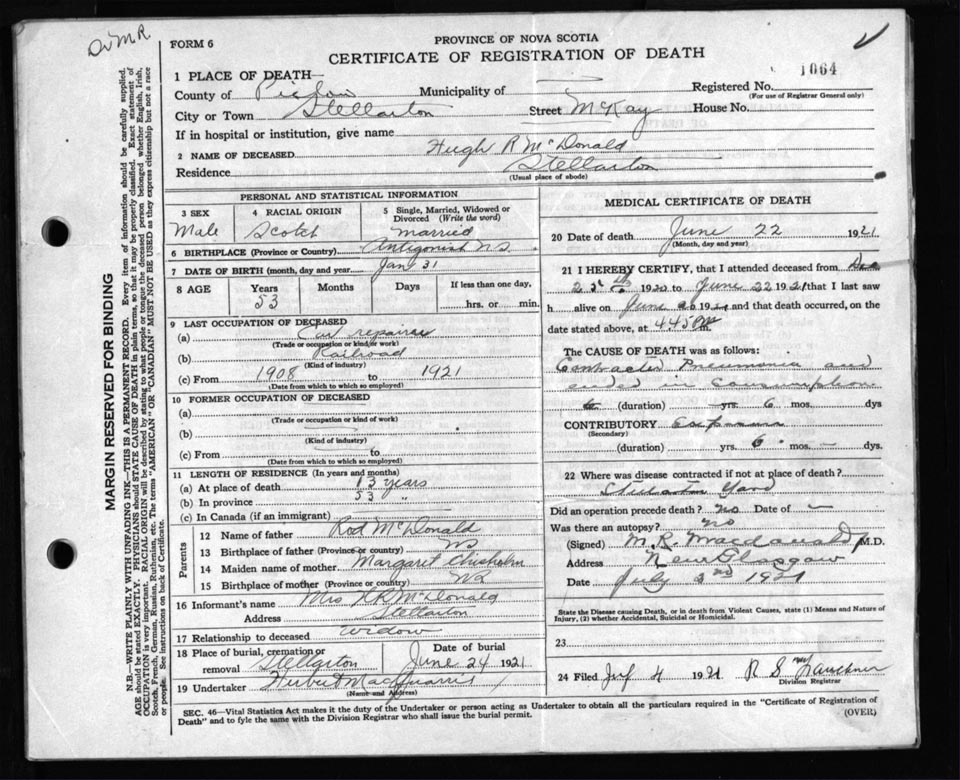 Dr M.R.
FORM 6
PROVINCE OF NOVA SCOTIA
CERTIFICATE OF REGISTRATION OF DEATH
1064
1 PLACE OF DEATH—
County of Pictou Municipality of Registered No.
(For use of Registrar General only)
City or Town Stellarton Street McKay House No.
If in hospital or institution, give name
2 NAME OF DECEASED Hugh R McDonald
Residence Stellarton
(Usual place of abode)
PERSONAL AND STATISTICAL INFORMATION
3 SEX Male
4 RACIAL ORIGIN Scotch
5 Single, Married, Widowed or Divorced (Write the word) married
6 BIRTHPLACE (Province or Country) Antigonish N.S.
7 DATE OF BIRTH (month, day and year) Jan 31
8 AGE Years 53 Months Days If less than one day, hrs. or min.
9 LAST OCCUPATION OF DECEASED
(a) Car repairer
(Trade or occupation or kind of work)
(b) Railroad
(Kind of industry)
(c) From 1908 to 1921
(Date from which to which so employed)
10 FORMER OCCUPATION OF DECEASED
(a)
(Trade or occupation or kind of work)
(b)
(Kind of industry)
(c) From to
(Date from which to which so employed)
11 LENGTH OF RESIDENCE (In years and months)
(a) At place of death 13 years
(b) In province 53 "
(c) In Canada (if an immigrant)
Parents
12 Name of father Rod McDonald
13 Birthplace of father (Province or country) NS
14 Maiden name of mother Margaret Chisholm
15 Birthplace of mother (Province or country) NS
16 Informant's name Mrs H R McDonald
Address Stellarton
17 Relationship to deceased Widow
18 Place of burial, cremation or removal Stellarton Date of burial June 24 1921
19 Undertaker Herbert MacQuarrie
(Name and Address)
MEDICAL CERTIFICATE OF DEATH
20 Date of death June 22 1921
(Month, day and year)
21 I HEREBY CERTIFY, that I attended deceased from Dec
25th 1920 to June 22 1921 that I last saw
h alive on June 1921 and that death occurred, on
date stated above, at 4.45 Pm.
The CAUSE OF DEATH was as follows:
Contracted Pneumonia and
ended in consumption
(duration) yrs. 6 mos. dys
CONTRIBUTORY
(Secondary)
(duration) yrs. 6 mos. — dys.
22 Where was disease contracted if not at place of death?
Stellarton Yard
Did an operation precede death? no Date of —
Was there an autopsy? no
(Signed) M. R. Macdonald M.D.
Address New Glasgow
Date July 2nd 1921
State the Disease causing Death, or in death from Violent Causes, state (1) Means and Nature of
Injury, (2) whether Accidental, Suicidal or Homicidal.
23
24 Filed July 4 1921 R S Faulkner
Division Registrar
SEC. 46—Vital Statistics Act makes it the duty of the Undertaker or person acting as Undertaker to obtain all the particulars required in the "Certificate of Registration of
Death" and to fyle the same with the Division Registrar who shall issue the burial permit. (OVER)
MARGIN RESERVED FOR BINDING
N.B.—WRITE PLAINLY WITH UNFADING INK—THIS IS A PERMANENT RECORD. Every item of information should be carefully supplied.
AGE should be stated EXACTLY. PHYSICIANS should STATE CAUSE OF DEATH in plain terms, so that it may be properly classified. Exact statement of
OCCUPATION is very important. RACIAL ORIGIN will be described by stating to what people or tongue the deceased person belonged whether English, Irish,
Scotch, French, German, Russian, Ruthenian, etc. The terms "AMERICAN" OR "CANADIAN" MUST NOT BE USED as they express citizenship but not a race
or people. See instructions on back of Certificate.